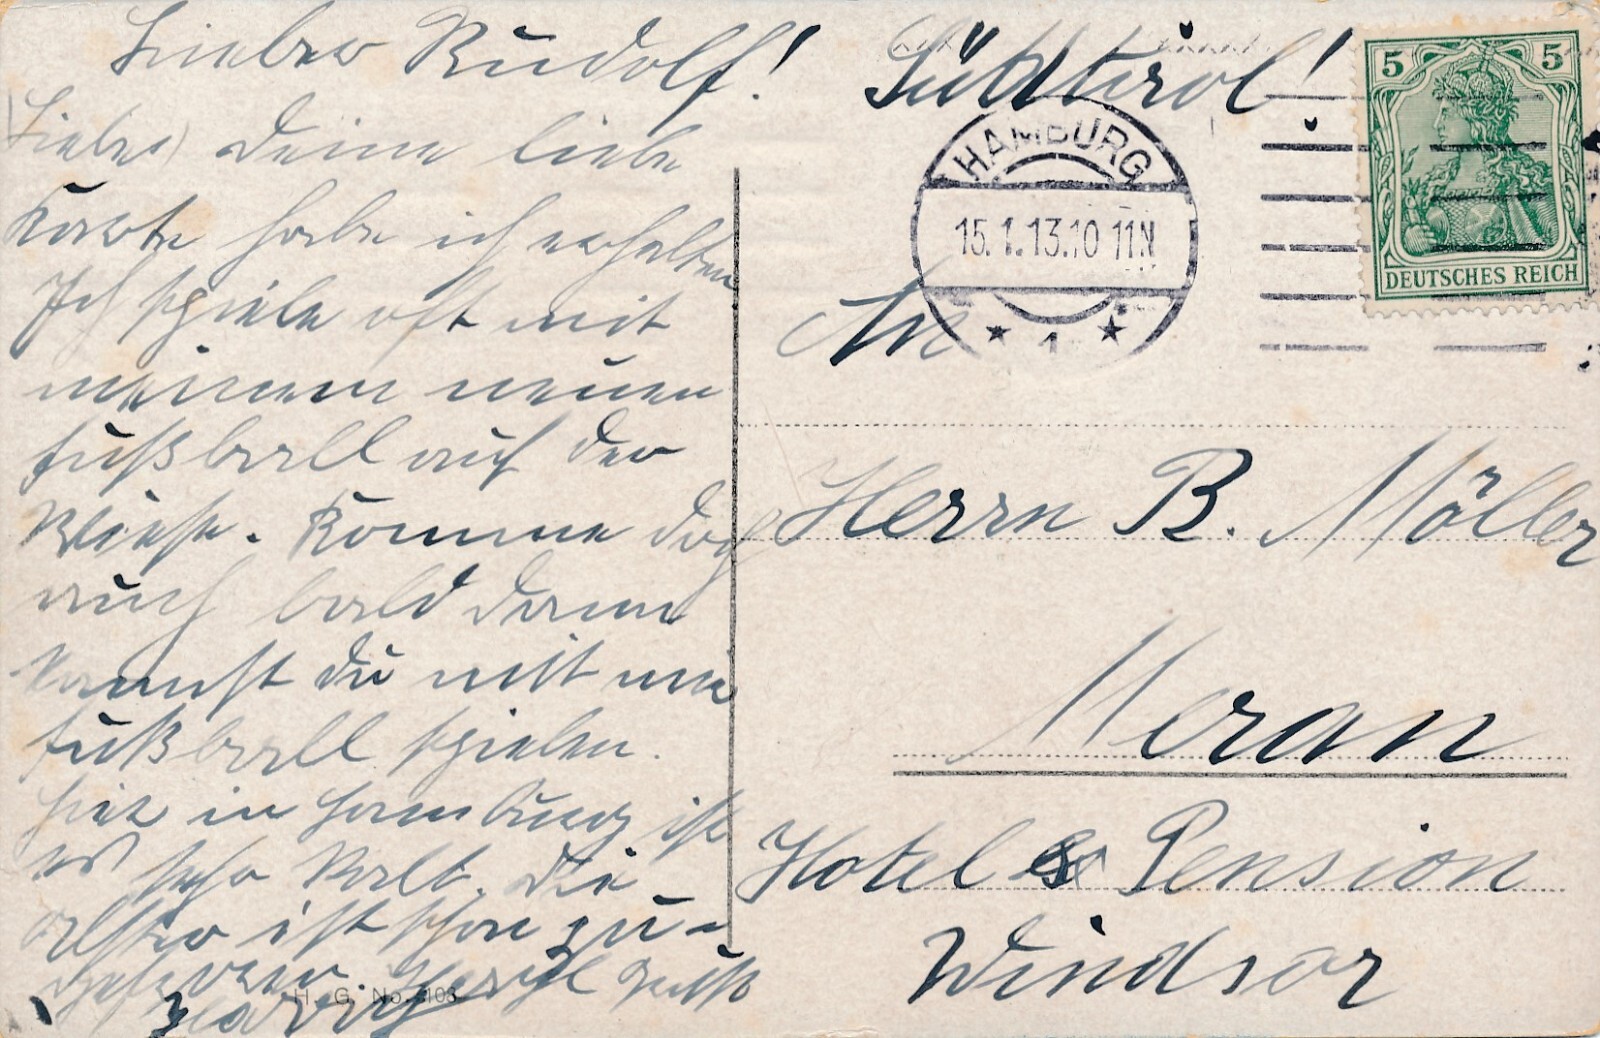 Lieber Rudolf!
Liebes Deine liebe
Karte habe ich erhalten
Ich spiele oft mit
meinem neuen
Fußball auf der
Wiese. Komme doch
auch bald dann
kannst Du mit mir
Fußball spielen.
Hier in Hamburg ist
es sehr kalt. Die
Alster ist schon zu-
gefroren. Herzl Gruß
Südtirol!
HAMBURG
15.1.13.10-11N
* 1 *
5 5
DEUTSCHES REICH
An
Herrn B. Möller
Meran
Hotel & Pension
Windsor
H. G. No. 103